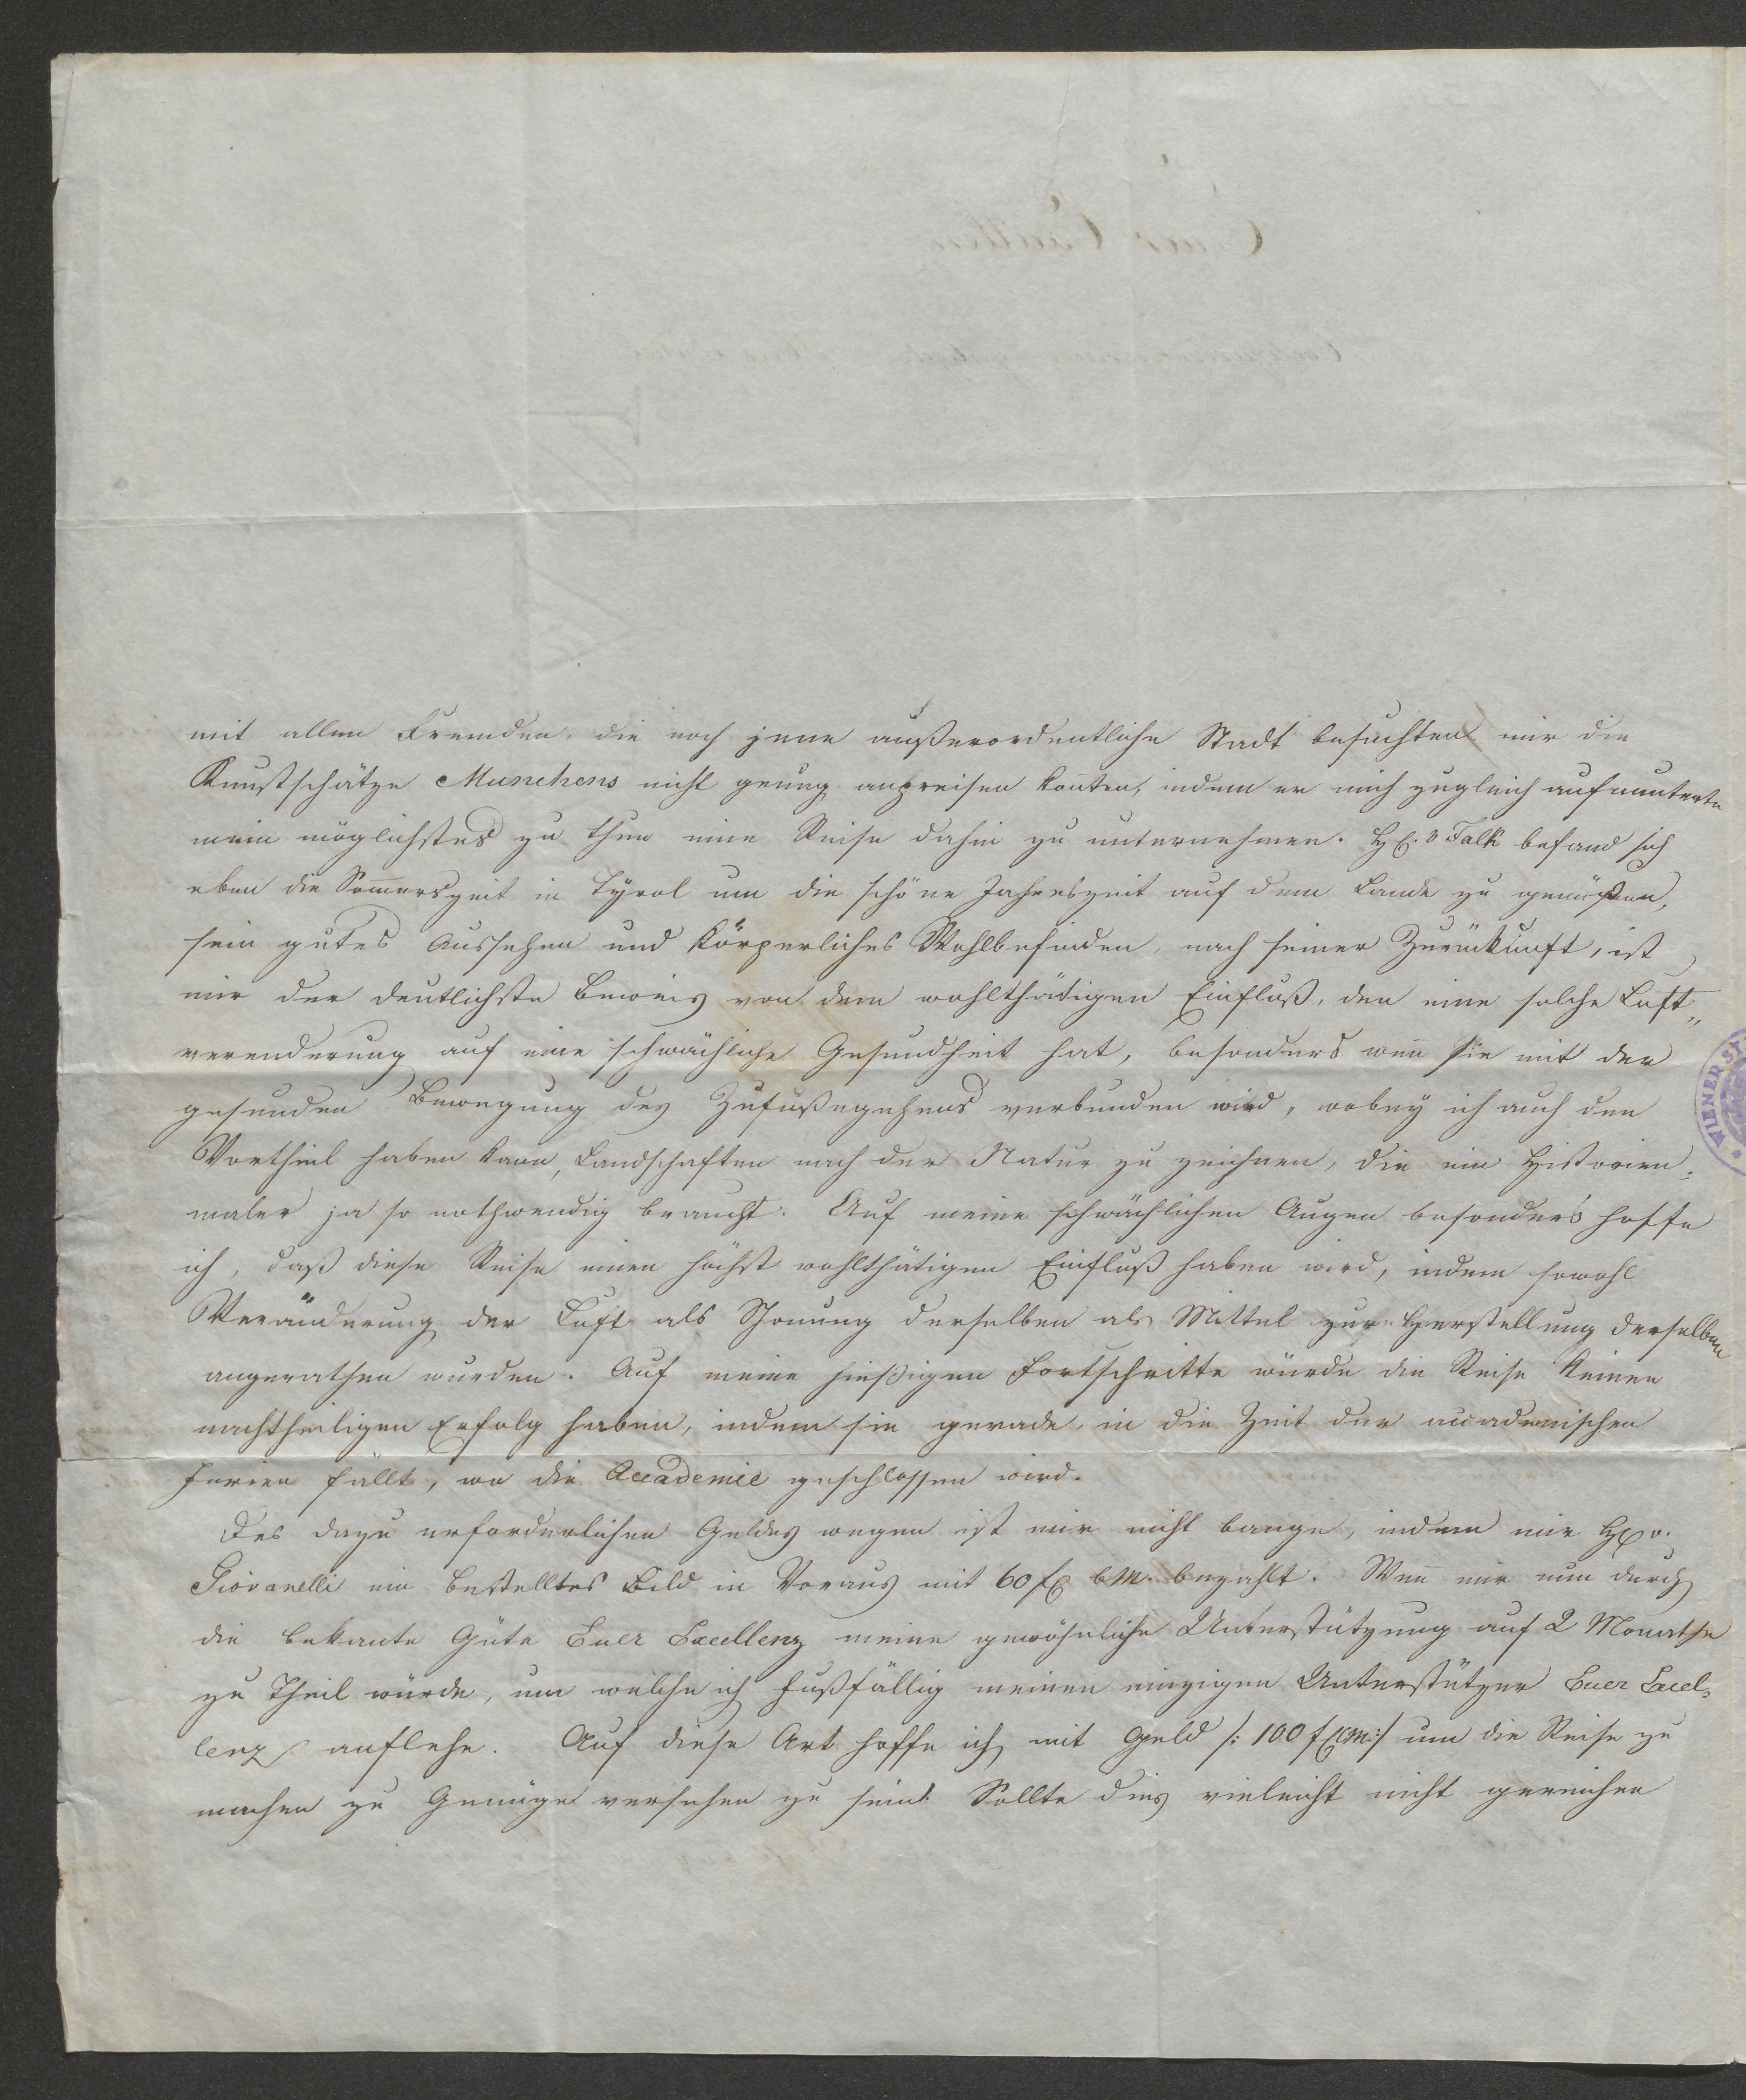 mit allen Fremden die noch jene außerordentliche Stadt besuchten mir die
Kunstschätze Munchens nicht genug anpreisen konten, indem er mich zugleich aufmunterte
mein möglichstes zu thun eine Reise dahin zu unternehmen. H. v Falk befand sich
eben die Som̅erszeit in Tÿrol um die schöne Jahreszeit auf dem Lande zu genüßen,
sein gutes Aussehen und körperliches Wohlbefinden, nach seiner Zurückkunft, ist
mir der deutlichste Beweis von dem wohlthätigen Einfluß, den eine solche Luft„
verenderung auf eine schwächliche Gesundheit hat, besonders wen̅ sie mit der
gesunden Bewegung des Zufußegehens verbunden wird, wobey ich auch den
Vortheil haben kann, Landschaften nach der Natur zu zeichnen, die ein Historien=
maler ja so nothwendig braucht. Auf meine schwächlichen Augen besonders hoffe
ich, daß diese Reise einen höchst wohlthätigen Einfluß haben wird, indem sowohl
Veränderung der Luft als Schonung derselben als Mittel zur Herstellung derselben
angerathen wurden. Auf meine hießigen Fortschritte würde die Reise keinen
nachtheiligen Erfolg haben, indem sie gerade in die Zeit der accademischen
Ferien fällt, wo die Accademie geschlossen wird.
Des dazu erforderlichen Geldes wegen ist mir nicht bange, indem mir H v.
Giovanelli ein bestelltes Bild in Voraus mit 60 f CM. bezahlt. Wen̅ mir nun durch
die bekante Güte Euer Excellenz meine gewöhnliche Unterstützung auf 2 Monathe
zu Theil würde, um welche ich fußfällig meinen einzigen Unterstützer Euer Excel=
lenz anflehe. Auf diese Art hoffe ich mit Geld /: 100 f CM :/ um die Reise zu
machen zu Genüge versehen zu sein. Sollte dies vieleicht nicht gereichen
WIENER